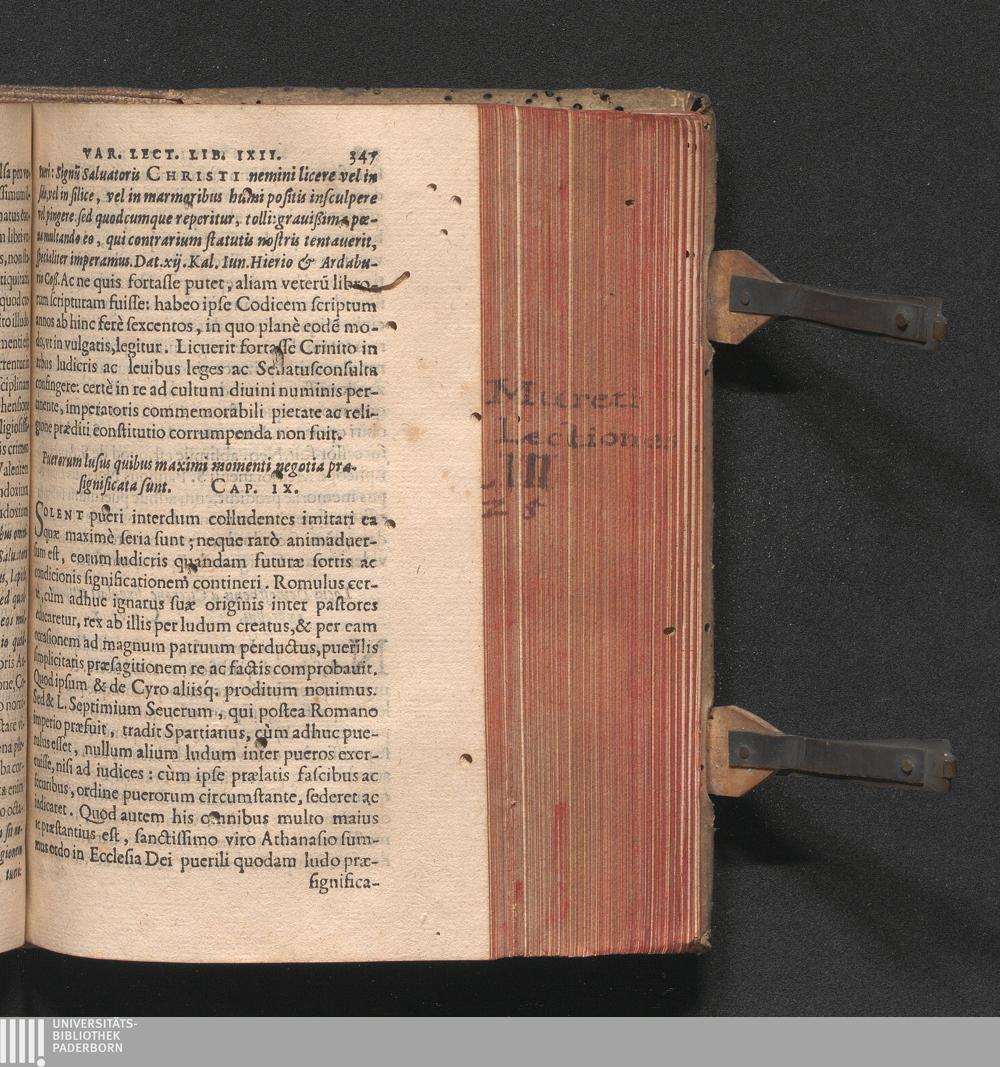 VAR. LECT. LIB. IXII. 347
turi: Signū Saluatoris CHRISTI nemini licere vel in
solo, vel in silice, vel in marmoribus humi positis insculpere
vel pingere: sed quodcumque reperitur, tolli: grauißima pœ-
na multando eo, qui contrarium statutis nostris tentauerit,
specialiter imperamus. Dat. xij. Kal. Iun. Hierio & Ardabu-
rio Coß. Ac ne quis fortasse putet, aliam veterū libro-
rum scripturam fuisse: habeo ipse Codicem scriptum
annos ab hinc ferè sexcentos, in quo planè eodē mo-
do, vt in vulgatis, legitur. Licuerit fortasse Crinito in
rebus ludicris ac leuibus leges ac Senatusconsulta
confingere: certè in re ad cultum diuini numinis per-
tinente, imperatoris commemorabili pietate ac reli-
gione præditi constitutio corrumpenda non fuit.
Puerorum lusus quibus maximi momenti negotia præ-
significata sunt. CAP. IX.
SOLENT pueri interdum colludentes imitari ea
quæ maximè seria sunt; neque rarò animaduer-
sum est, eorum ludicris quandam futuræ sortis ac
condicionis significationem contineri. Romulus cer-
tè, cùm adhuc ignarus suæ originis inter pastores
educaretur, rex ab illis per ludum creatus, & per eam
occasionem ad magnum patruum perductus, puerilis
simplicitatis præsagitionem re ac factis comprobauit.
Quod ipsum & de Cyro aliisq́. proditum nouimus.
Sed & L. Septimium Seuerum, qui postea Romano
imperio præfuit, tradit Spartianus, cùm adhuc pue-
rulus esset, nullum alium ludum inter pueros exer-
cuisse, nisi ad iudices: cùm ipse prælatis fascibus ac
securibus, ordine puerorum circumstante, sederet ac
iudicaret. Quod autem his omnibus multo maius
ac præstantius est, sanctissimo viro Athanasio sum-
mus ordo in Ecclesia Dei puerili quodam ludo præ-
significa-
Mureti
Lectiones
25
UNIVERSITÄTS-
BIBLIOTHEK
PADERBORN